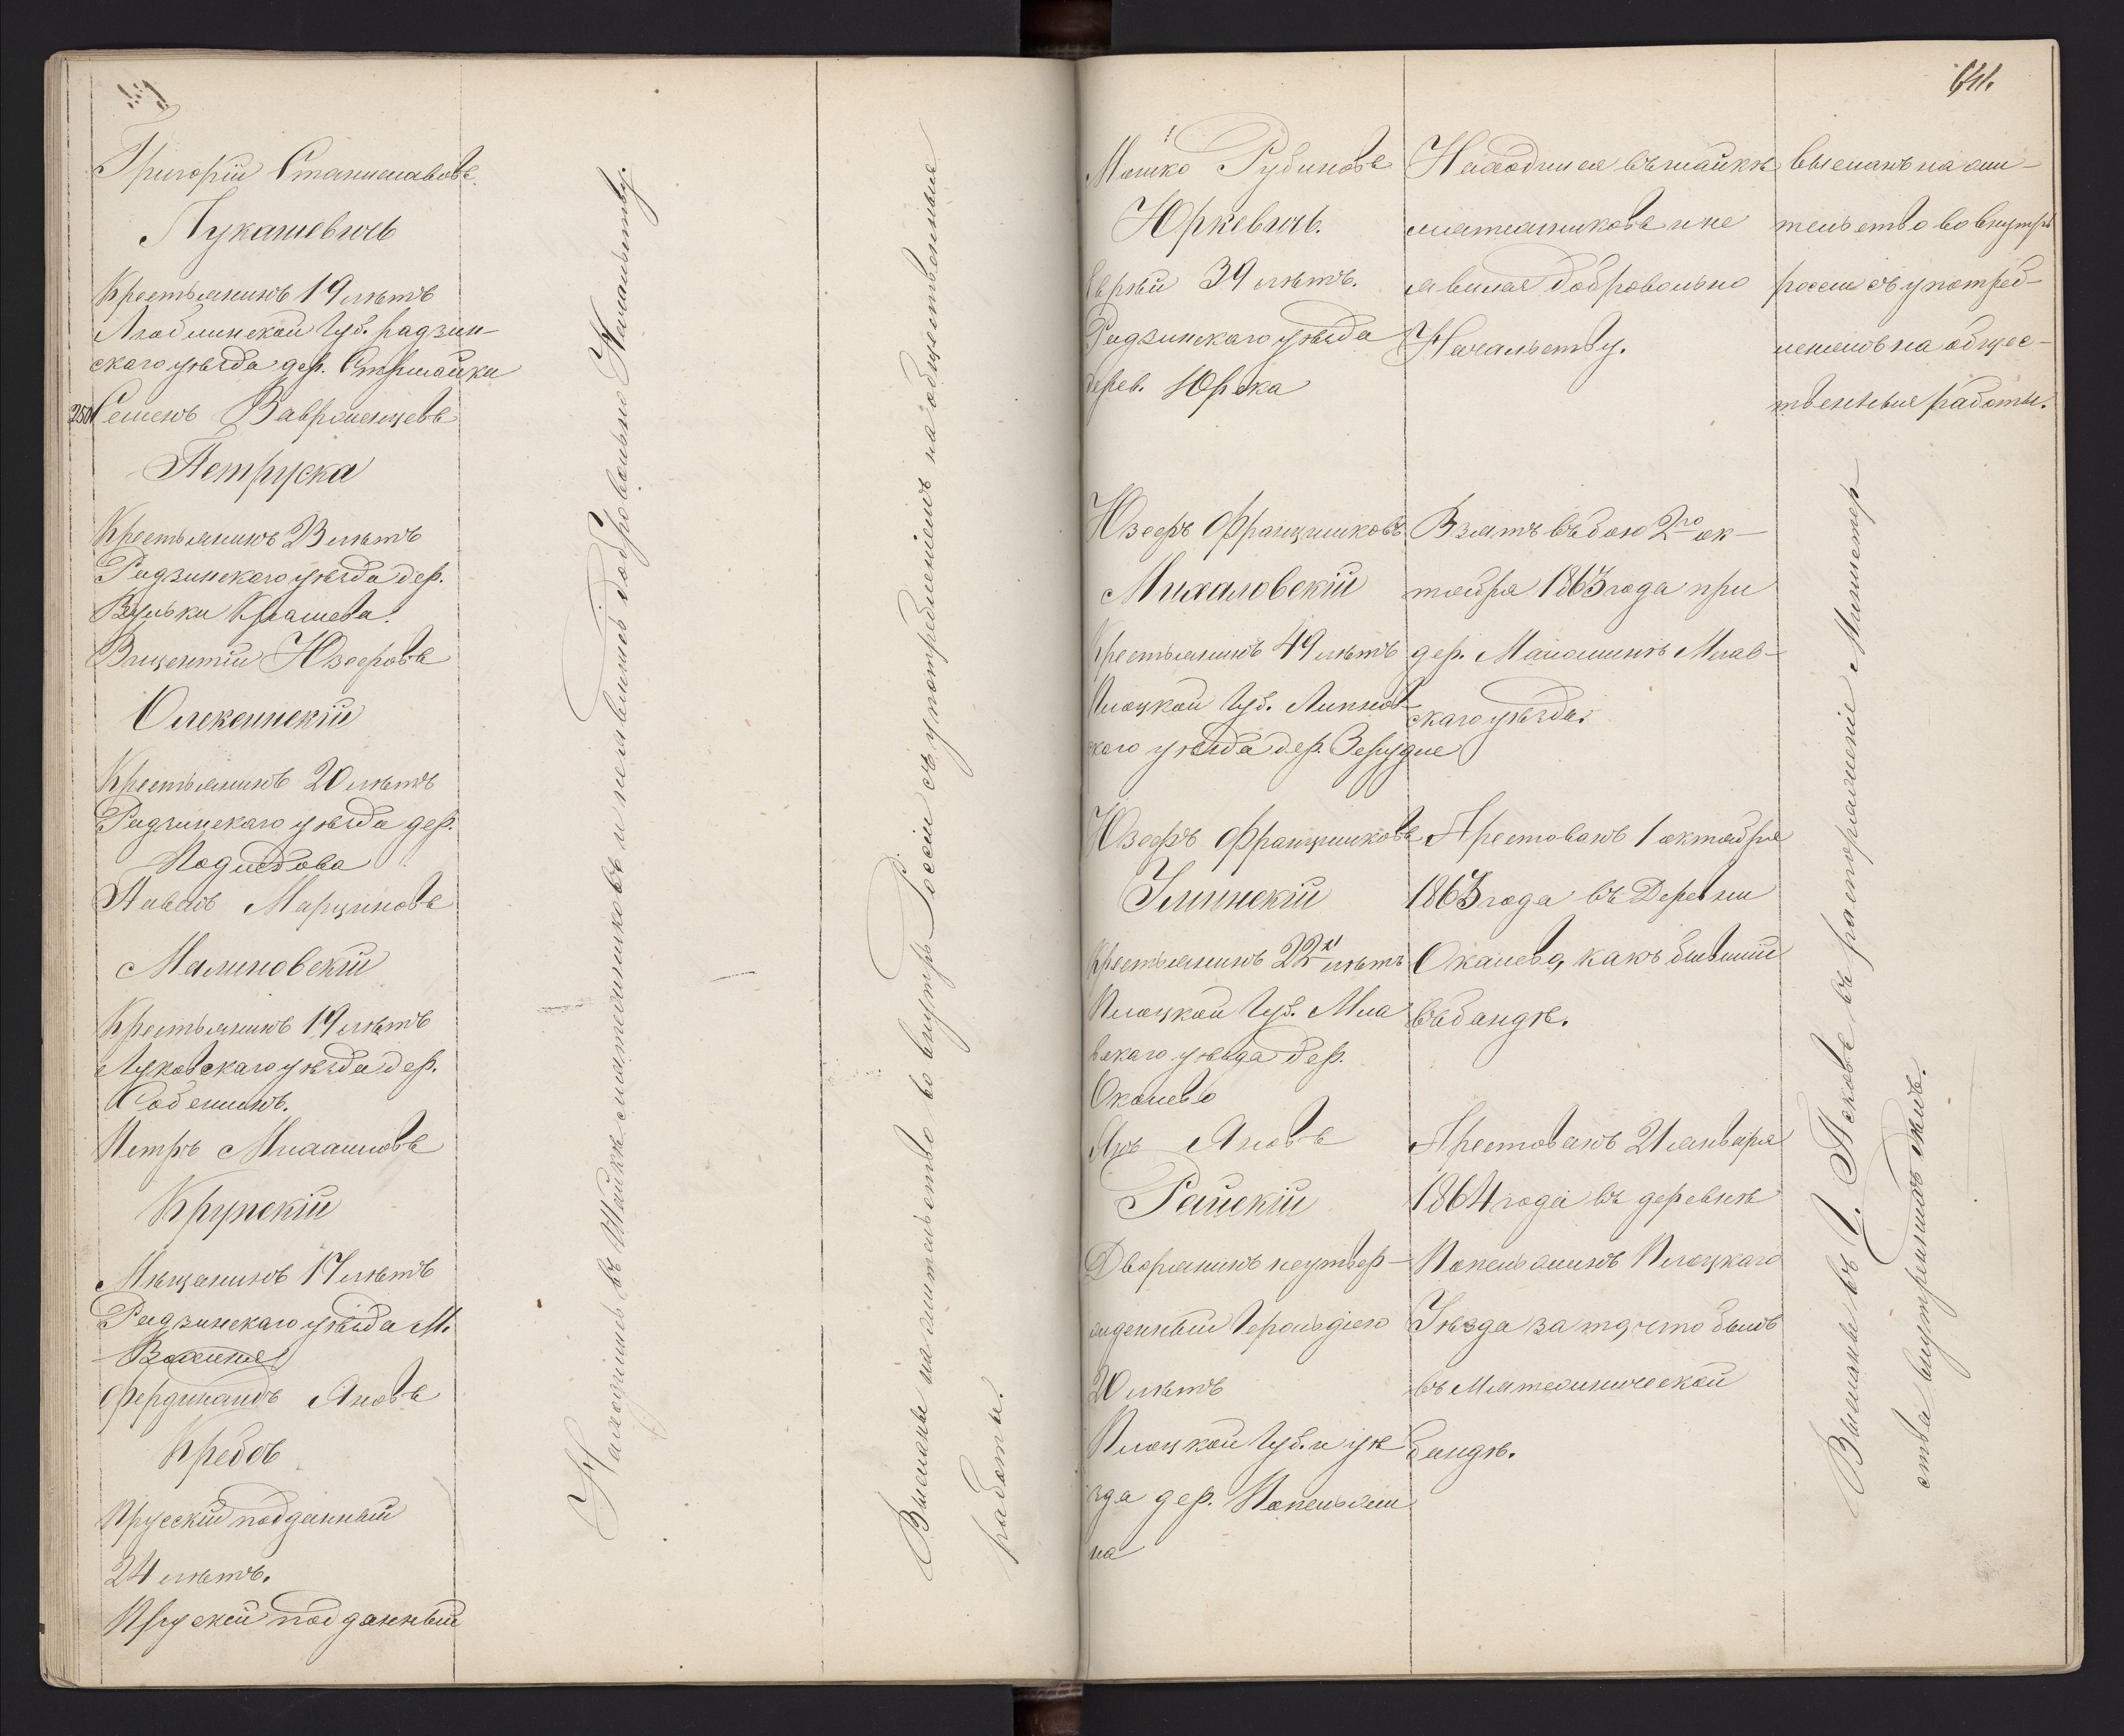 Григорій Станиславовъ
Лукашевичъ
Крестьянинъ 19 лѣтъ
Люблинской Губ. радзин-
скаго уѣзда дер.
250 Семенъ Ваврженцевъ
Петруска
Крестьянинъ 23 лѣтъ
Радзинскаго уѣзда дер.
Вульки
Вицентій Юзефовъ
Олексинскій
Крестьянинъ 20 лѣтъ
Радзинскаго уѣзда дер.
Павелъ Марциновъ
Малиновскій
Крестьянинъ 19 лѣтъ
Луковскаго уѣзда дер.
Петръ
Крупскій
Мѣщанинъ 17 лѣтъ
Радзинскаго уѣзда М.
Фердинандъ Яновъ
Кребсъ
Прусскій подданный
24 лѣтъ.
Прускій подданный
Находились въ Шайкѣ мятежниковъ и неявились добровольно Начальству.
Высланы на жительство во внутрь Россіи съ употребленіемъ на общественныя
работы.
641.
Мошко Рубиновъ
Юркевичъ.
Еврей 39 лѣтъ.
Радзинскаго уѣзда
дерев.
Находился въ шайкѣ
мятежниковъ и не
явился добровольно
Начальству.
высланъ на жи-
тельство во внутрь
россіи съ употреб-
леніемъ на общес-
твенныя работы.
Юзефъ Францишковъ
Михаловскій
Крестьянинъ 49 лѣтъ
Плоцкой Губ. Липнов-
скаго уѣзда дер.
Взятъ въ бою 2го ок-
тября 1863 года при
дер. Млав-
скаго уѣзда.
Юзефъ Францишковъ
Крестьянинъ 22 лѣтъ
Плоцкой Губ. Мла
вскаго уѣзда дер.
Окалево
Арестованъ 1 октября
1863 года въ Деревни
Окалево, какъ бывшій
въ бандѣ.
Янъ Яновъ
Райскій
Дворянинъ неутвер-
жденный Герольдіею
20 лѣтъ
Плоцкой Губ. и уѣ
зда дер. Попельжи
на
Арестованъ 21 января
1864 года въ деревнѣ
Попельжинъ Плоцкаго
Уѣзда за то, что былъ
въ Мятежнической
бандѣ.
Высланы въ Г. Псковъ въ распоряженіе Министер
ства внутреннихъ дѣлъ.